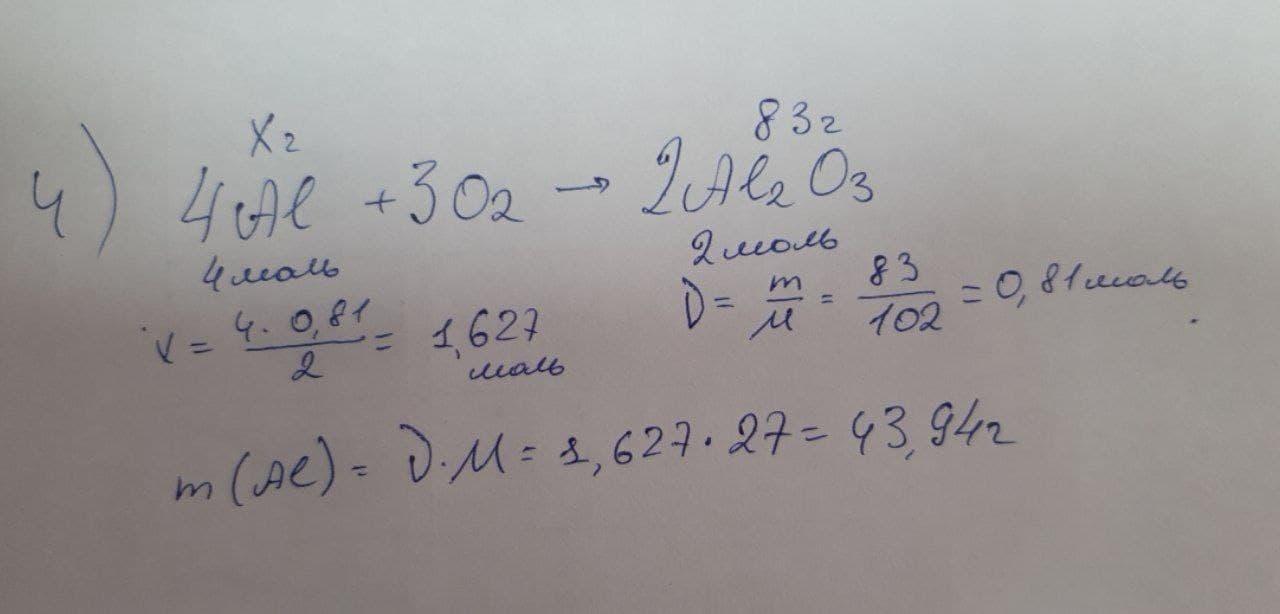 4) 4Al + 3O₂ → 2Al₂O₃
xг 83г
4моль 2моль
ν = m/M = 83/102 = 0,81моль
x = 4·0,81/2 = 1,627 моль
m(Al) = ν·M = 1,627·27 = 43,94г